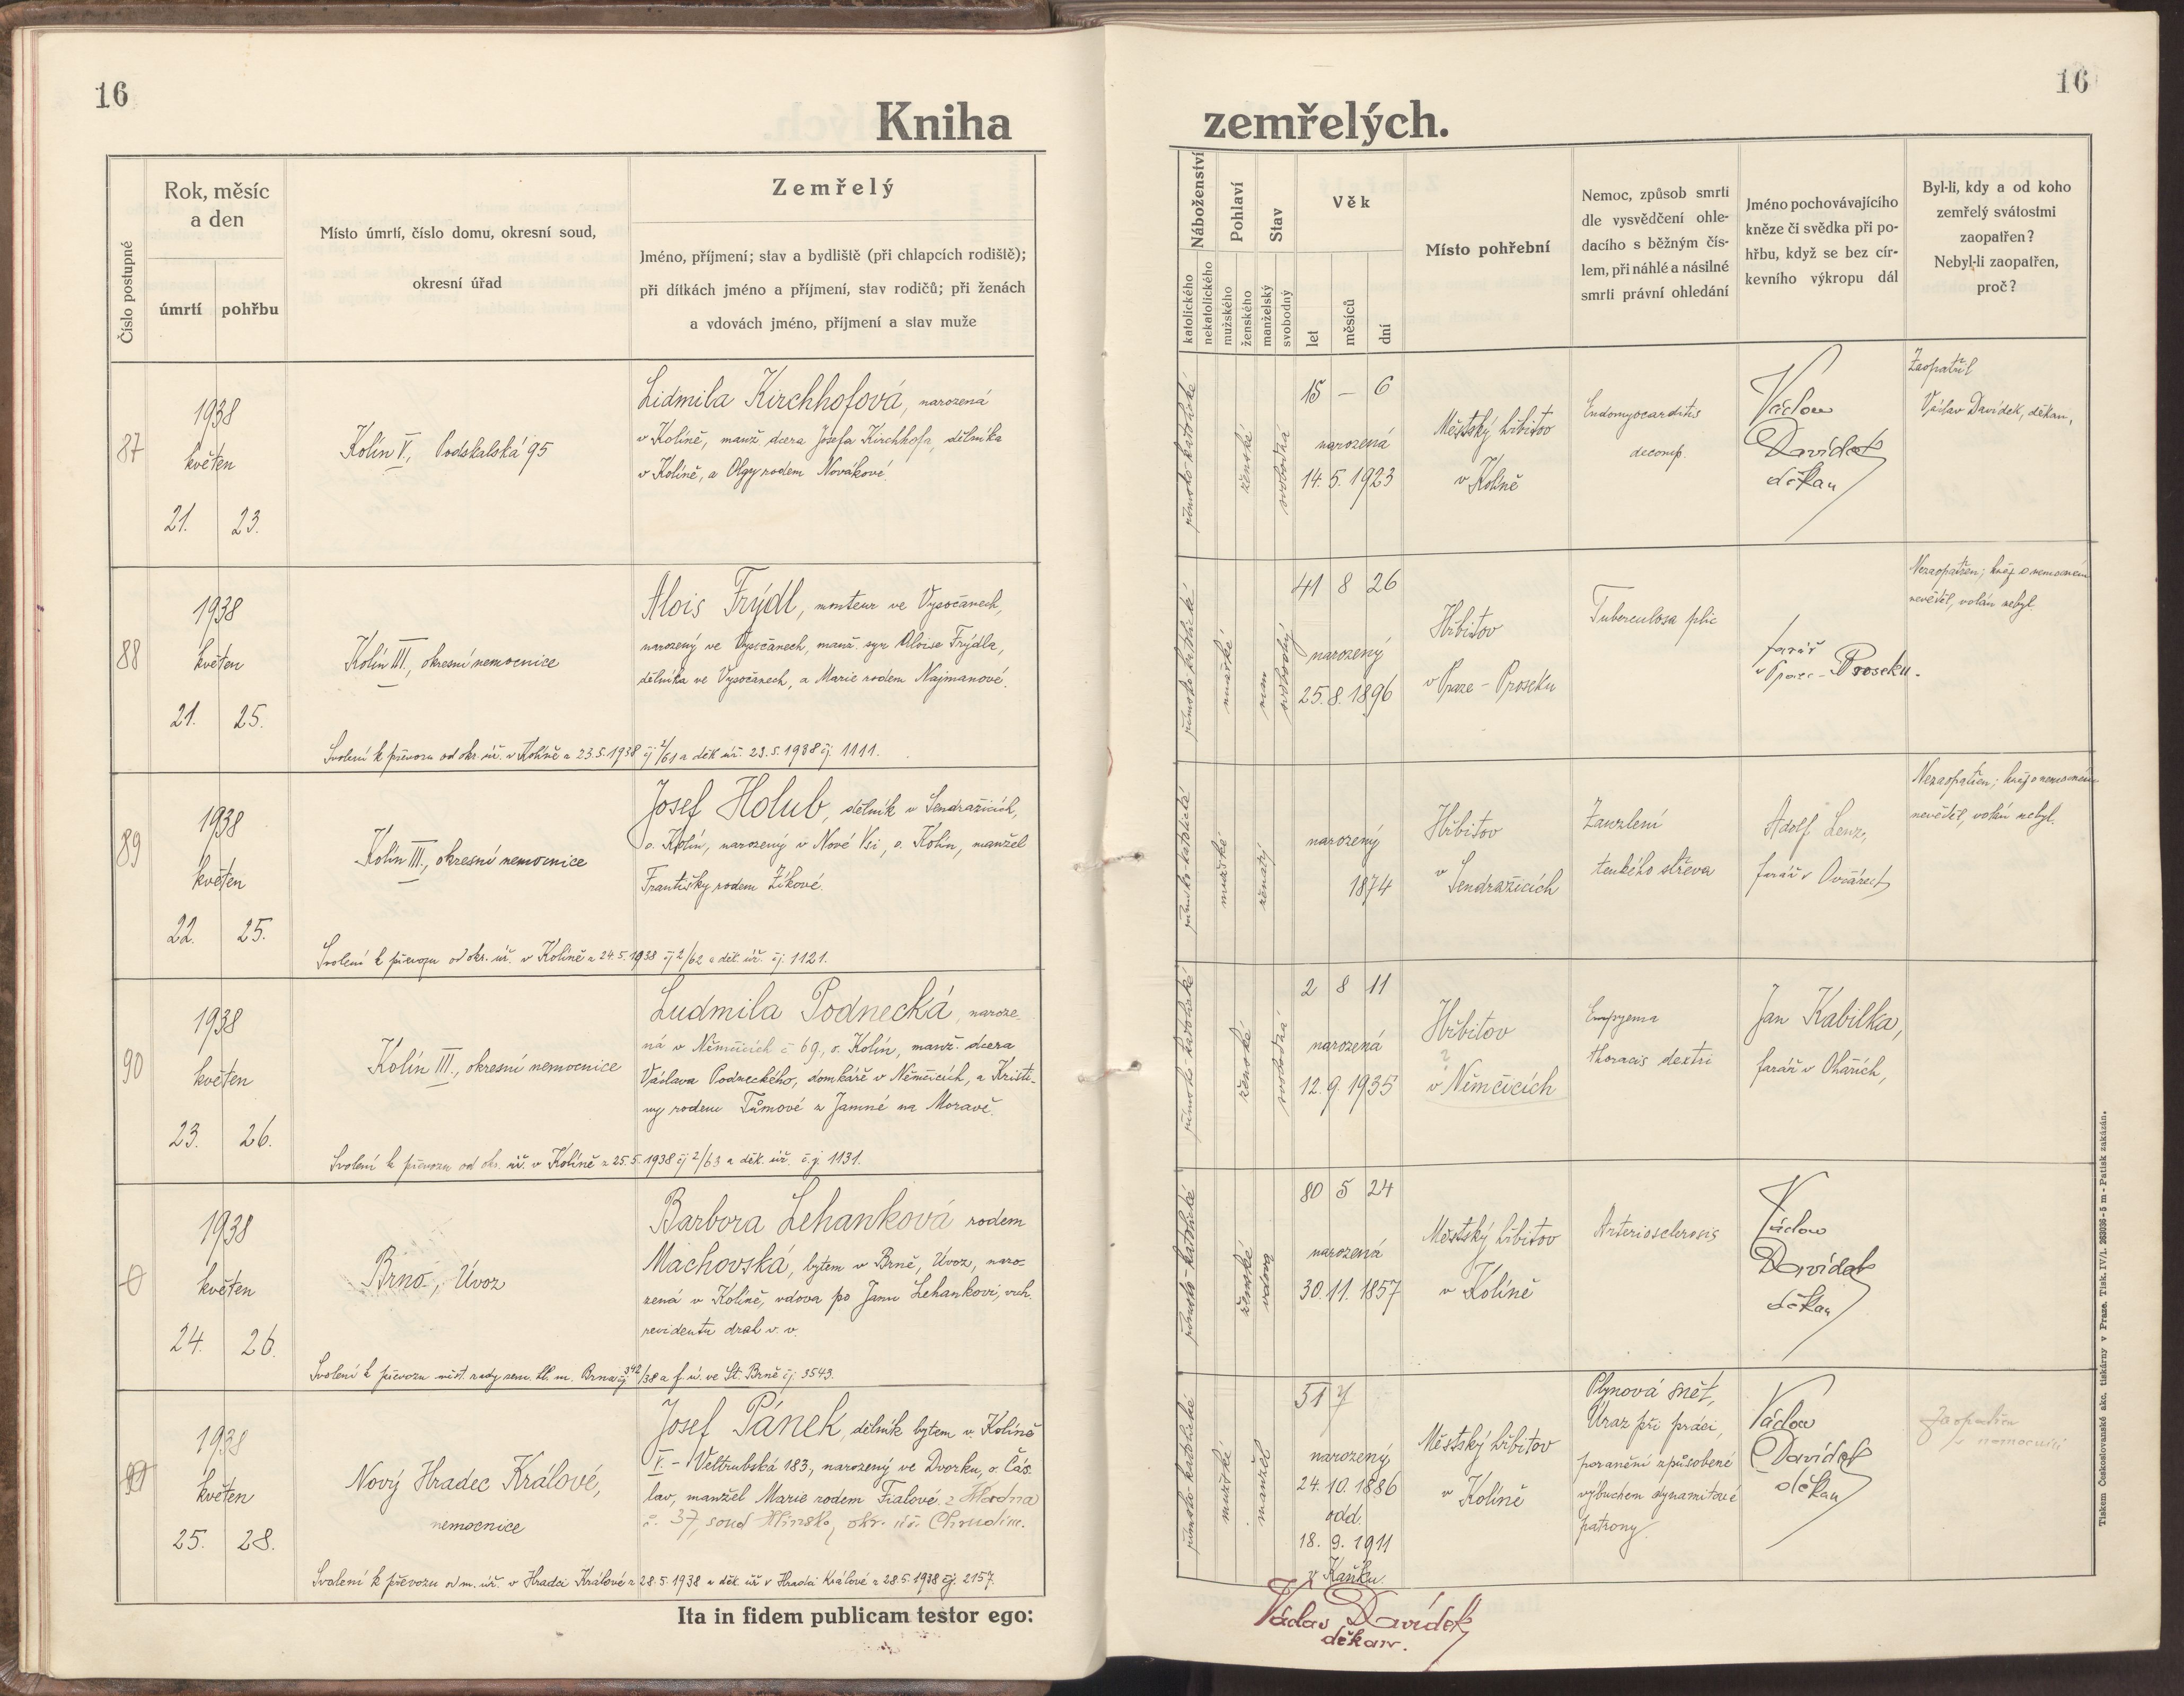 16
16
Kniha zemřelých.
Číslo postupné
Rok, měsíc
a den
úmrtí
pohřbu
Místo úmrtí, číslo domu, okresní soud,
okresní úřad
Zemřelý
Jméno, příjmení; stav a bydliště (při chlapcích rodiště);
při dítkách jméno a příjmení, stav rodičů; při ženách
a vdovách jméno, příjmení a stav muže
Náboženství
katolického
nekatolického
Pohlaví
mužského
ženského
Stav
manželský
svobodný
Věk
let
měsíců
dní
Místo pohřební
Nemoc, způsob smrti
dle vysvědčení ohle-
dacího s běžným čís-
lem, při náhlé a násilné
smrti právní ohledání
Jméno pochovávajícího
kněze či svědka při po-
hřbu, když se bez cír-
kevního výkropu dál
Byl-li, kdy a od koho
zemřelý svátostmi
zaopatřen?
Nebyl-li zaopatřen,
proč?
87
1938
květen
21. 23.
Kolín V., Podskalská 95
Lidmila Kirchhofová, narozená
v Kolíně, manž. dcera Josefa Kirchhofa, dělníka
v Kolíně, a Olgy rodem Novákové.
římsko-katolické
ženské
svobodná
15 — 6
narozená
14. 5. 1923
Městský hřbitov
v Kolíně
Endomyocarditis
decomp.
Václav
Davídek
děkan
Zaopatřil
Václav Davídek, děkan,
88
1938
květen
21. 25.
Kolín III., okresní nemocnice
Alois Frýdl, monteur ve Vysočanech,
narozený ve Vysočanech, manž. syn Aloise Frýdla,
dělníka ve Vysočanech, a Marie rodem Najmanové.
Svolení k převozu od okr. úř. v Kolíně z 23.5.1938 čj 2/61 a děk. úř. 23.5.1938 čj. 1111.
římsko-katolické
mužské
svobodný
41 8 26
narozený
25. 8. 1896
Hřbitov
v Praze - Proseku
Tuberculosa plic
farář
v Praze - Proseku.
Nezaopatřen; kněz o nemocném
nevěděl, volán nebyl.
89
1938
květen
22. 25.
Kolín III., okresní nemocnice
Josef Holub, dělník v Sendražicích,
o. Kolín, narozený v Nové Vsi, o. Kolín, manžel
Františky rodem Zikové.
Svolení k převozu od okr. úř. v Kolíně z 24.5.1938 čj 2/62 a děk. úř. čj. 1121.
římsko-katolické
mužské
ženatý
narozený
1874
Hřbitov
v Sendražicích
Zauzlení
tenkého střeva
Adolf Lenz,
farář v Ovčárech
Nezaopatřen; kněz o nemocném
nevěděl, volán nebyl.
90
1938
květen
23. 26.
Kolín III., okresní nemocnice
Ludmila Podnecká, naroze-
ná v Němčicích č 69., o. Kolín, manž. dcera
Václava Podneckého, domkáře v Němčicích, a Kristi-
ny rodem Tůmové z Jamné na Moravě.
Svolení k převozu od okr. úř. v Kolíně z 25.5.1938 čj 2/63 a děk. úř. č.j. 1131.
římsko-katolické
ženské
svobodná
2 8 11
narozená
12. 9. 1935
Hřbitov
?
v Němčicích
Empyema
thoracis dextri
Jan Kabilka,
farář v Ohařích,
0
1938
květen
24. 26.
Brno, Úvoz
Barbora Lehanková rodem
Machovská, bytem v Brně, Úvoz, naro-
zená v Kolíně, vdova po Janu Lehankovi, vrch.
revidentu drah v. v.
Svolení k převozu měst. rady zem. hl. m. Brna čj. 342/38 a f. ú. ve St. Brně čj. 3543.
římsko-katolické
ženské
vdova
80 5 24
narozená
30. 11. 1857
Městský hřbitov
v Kolíně
Arteriosclerosis
Václav
Davídek
děkan
1938
květen
25. 28.
Nový Hradec Králové,
nemocnice
Josef Pánek, dělník bytem v Kolíně
V. - Veltrubská 183, narozený ve Dvorku, o. Čás-
lav, manžel Marie rodem Fialové z
č. 37, soud Hlinsko, okr. úř. Chrudim.
Svolení k převozu od m. úř. v Hradci Králové z 28.5.1938 a děk. úř v Hradci Králové z 28.5.1938 čj. 2157.
římsko-katolické
mužské
manžel
51 7
narozený
24. 10. 1886
odd.
18. 9. 1911
v Kaňku.
Městský hřbitov
v Kolíně
Plynová sněť,
Úraz při práci,
poranění způsobené
výbuchem dynamitové
patrony.
Václav
Davídek
děkan
Zaopatřen
v nemocnici
Ita in fidem publicam testor ego:
Václav Davídek
děkan.
Tiskem Československé akc. tiskárny v Praze. Tisk. IV/1. 263036-5 m - Patisk zakázán.